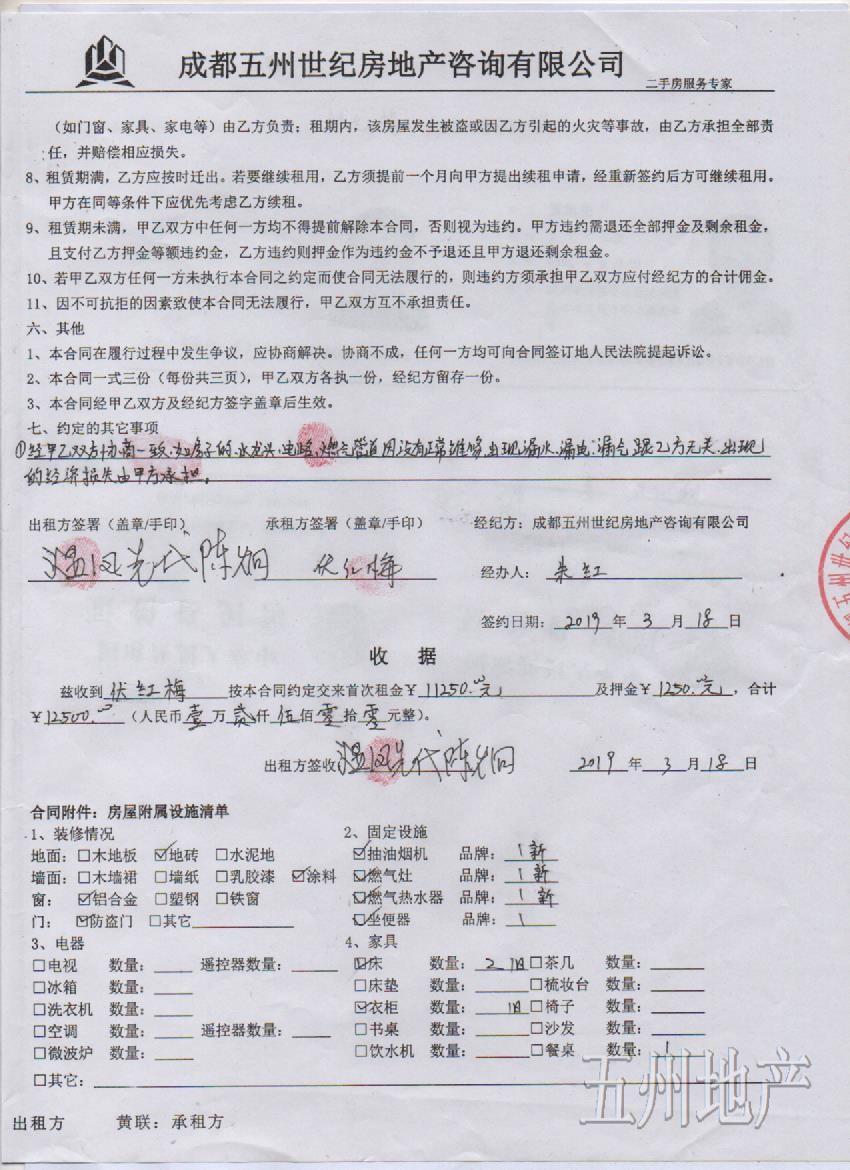 成都五州世纪房地产咨询有限公司
二手房服务专家
（如门窗、家具、家电等）由乙方负责；租期内，该房屋发生被盗或因乙方引起的火灾等事故，由乙方承担全部责
任，并赔偿相应损失。
8、租赁期满，乙方应按时迁出。若要继续租用，乙方须提前一个月向甲方提出续租申请，经重新签约后方可继续租用。
甲方在同等条件下应优先考虑乙方续租。
9、租赁期未满，甲乙双方中任何一方均不得提前解除本合同，否则视为违约。甲方违约需退还全部押金及剩余租金，
且支付乙方押金等额违约金，乙方违约则押金作为违约金不予退还且甲方退还剩余租金。
10、若甲乙双方任何一方未执行本合同之约定而使合同无法履行的，则违约方须承担甲乙双方应付经纪方的合计佣金。
11、因不可抗拒的因素致使本合同无法履行，甲乙双方互不承担责任。
六、其他
1、本合同在履行过程中发生争议，应协商解决。协商不成，任何一方均可向合同签订地人民法院提起诉讼。
2、本合同一式三份（每份共三页），甲乙双方各执一份，经纪方留存一份。
3、本合同经甲乙双方及经纪方签字盖章后生效。
七、约定的其它事项
①经甲乙双方协商一致，如房子的水龙头、电路、燃气管道因没有正常维修，出现漏水、漏电、漏气跟乙方无关，出现
的经济损失由甲方承担。
出租方签署（盖章/手印） 承租方签署（盖章/手印） 经纪方：成都五州世纪房地产咨询有限公司
温凤先代陈炯 伏红梅 经办人：朱红
签约日期：2019 年 3 月 18 日
收 据
兹收到 伏红梅 按本合同约定交来首次租金￥11250.00元 及押金￥1250.00元，合计
￥12500.00（人民币壹万贰仟伍佰零拾零元整）。
出租方签收 温凤先代陈炯 2019 年 3 月 18 日
合同附件：房屋附属设施清单
1、装修情况 2、固定设施
地面：□木地板 ☑地砖 □水泥地 ☑抽油烟机 品牌：1新
墙面：□木墙裙 □墙纸 □乳胶漆 ☑涂料 ☑燃气灶 品牌：1新
窗： ☑铝合金 □塑钢 □铁窗 ☑燃气热水器 品牌：1新
门： ☑防盗门 □其它 ☑坐便器 品牌：1
3、电器 4、家具
□电视 数量： 遥控器数量： ☑床 数量：2旧 □茶几 数量：
□冰箱 数量： □床垫 数量： □梳妆台 数量：
□洗衣机 数量： ☑衣柜 数量：1旧 □椅子 数量：
□空调 数量： 遥控器数量： □书桌 数量： □沙发 数量：
□微波炉 数量： □饮水机 数量： □餐桌 数量：1
□其它：
五州地产
出租方 黄联：承租方